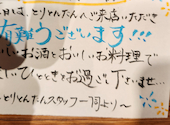 本日は、とりとんたんへご来店いただき
有難うございます!!!
いいお酒とおいしいお料理で
ひとときをお過ごし下さいませ…
とりとんたんスタッフ一同より〜